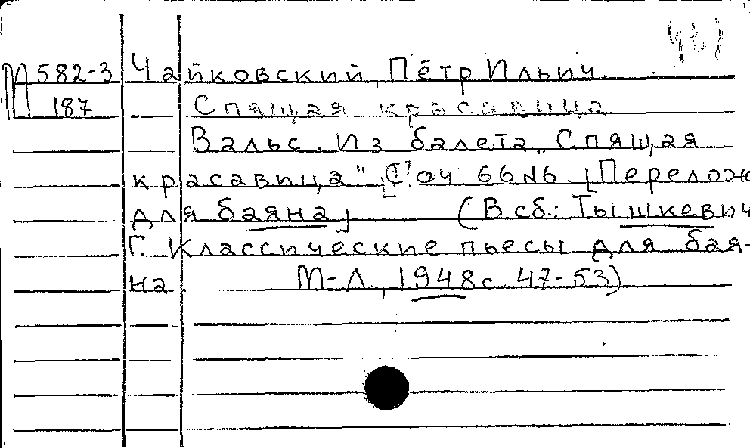 П 582-3 Чайковский, Пётр Ильич
187 Спящая красавица
Вальс. Из балета „Спящая
красавица" [С]оч 66 №6 [Перелож
для баяна] (В сб.: Тышкевич
Г. Классические пьесы для бая-
на М-Л, 1948 с 47-53)